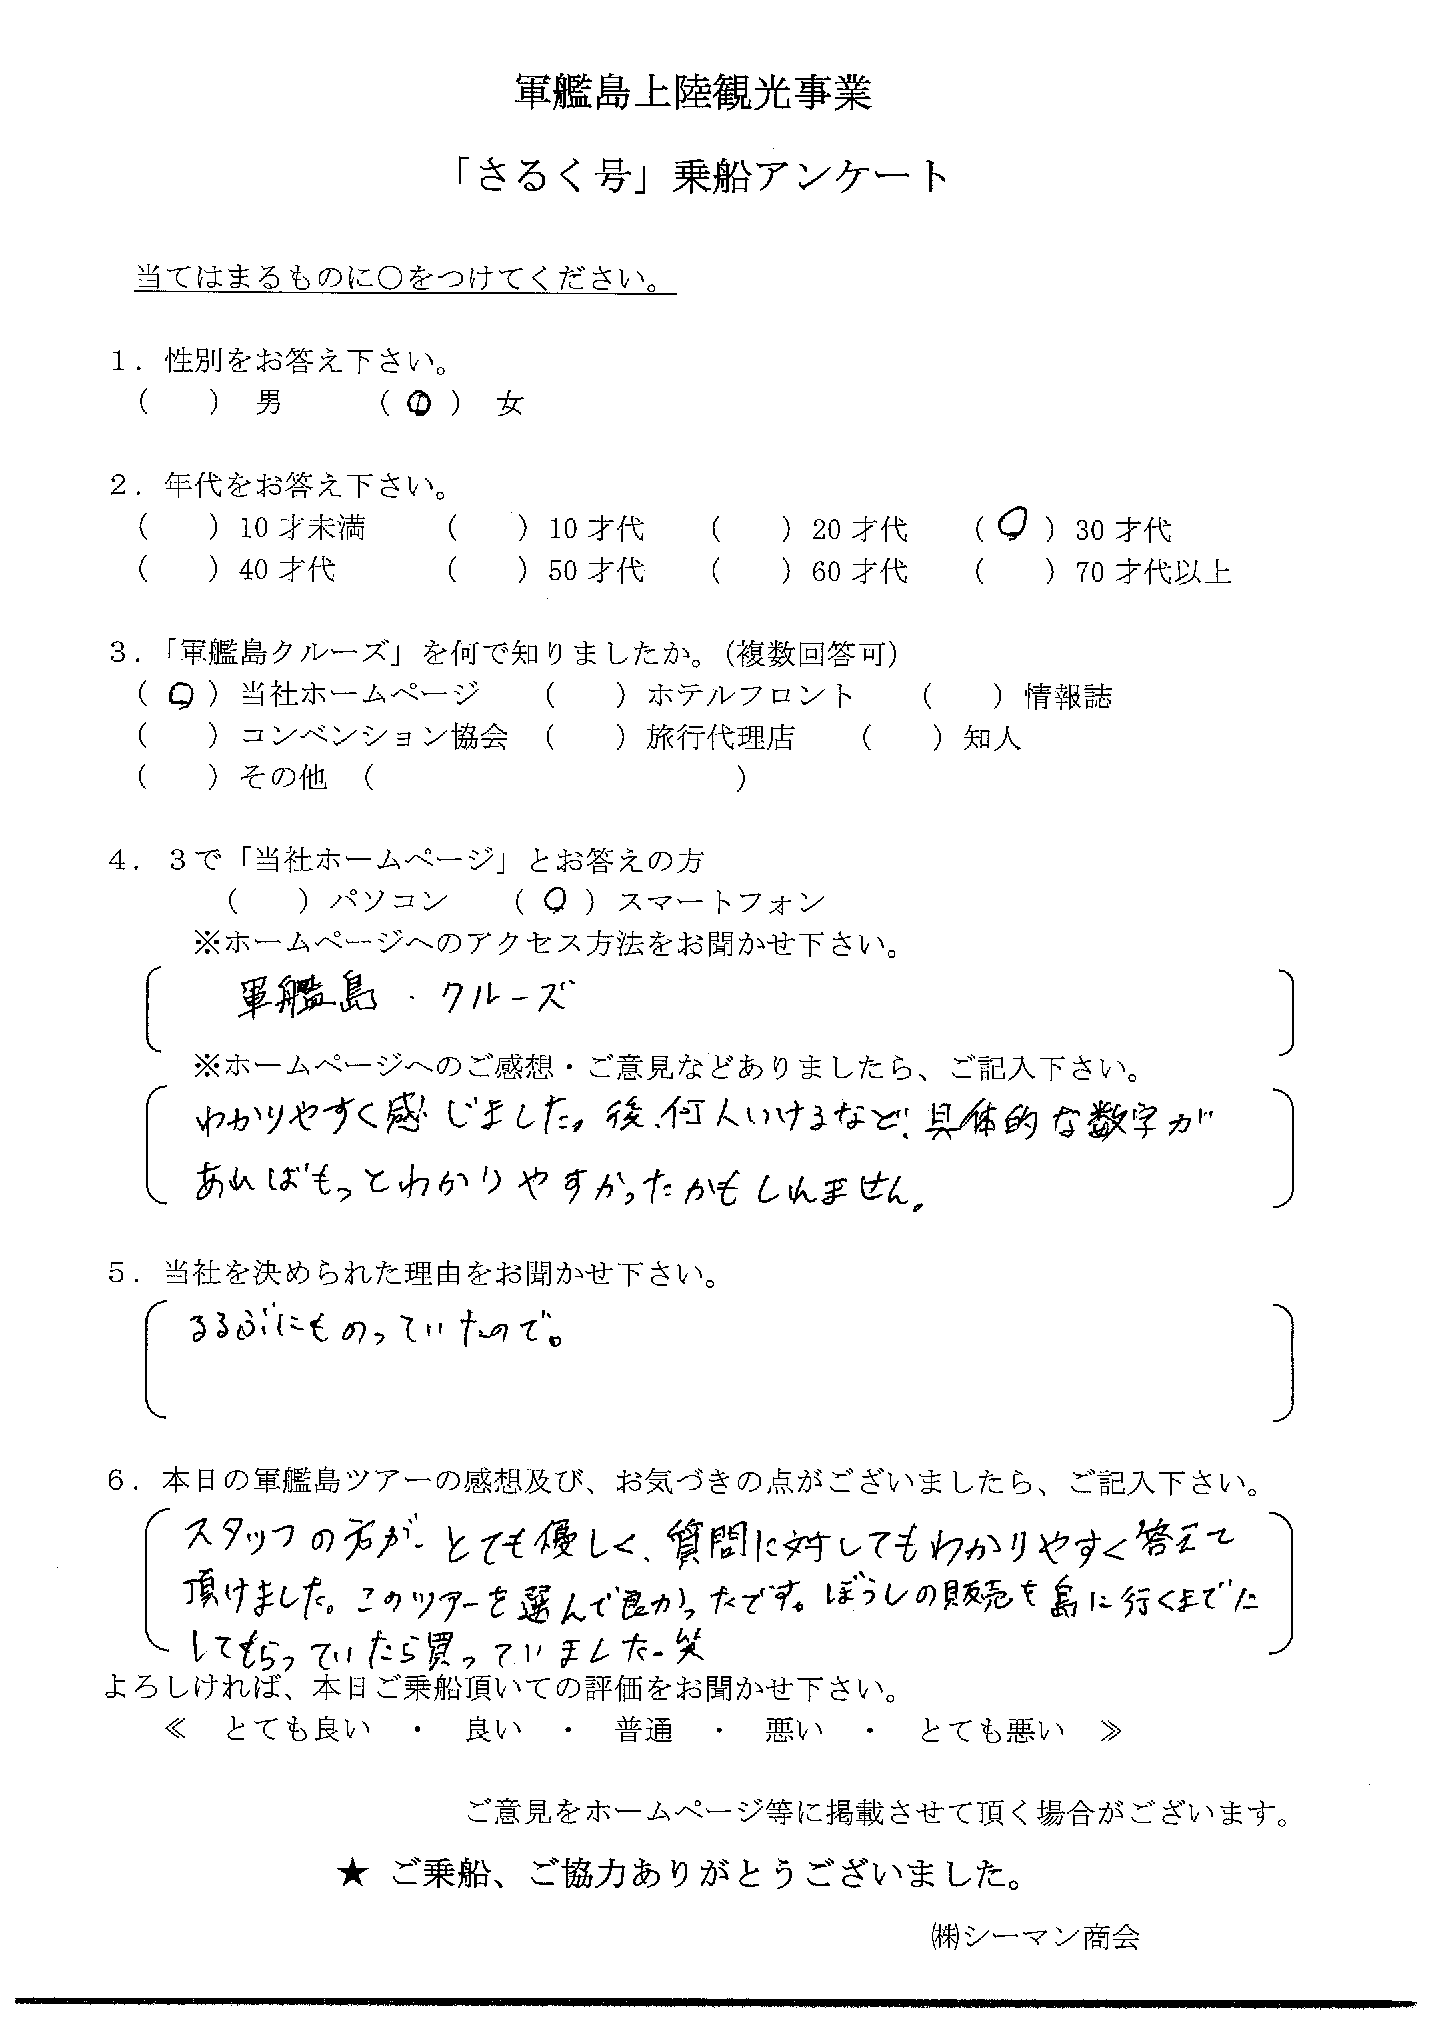 軍艦島上陸観光事業
「さるく号」乗船アンケート
当てはまるものに○をつけてください。
1．性別をお答え下さい。
（　）男　（○）女
2．年代をお答え下さい。
（　）10才未満　（　）10才代　（　）20才代　（○）30才代
（　）40才代　（　）50才代　（　）60才代　（　）70才代以上
3．「軍艦島クルーズ」を何で知りましたか。（複数回答可）
（○）当社ホームページ　（　）ホテルフロント　（　）情報誌
（　）コンベンション協会　（　）旅行代理店　（　）知人
（　）その他　（　　　）
4．3で「当社ホームページ」とお答えの方
（　）パソコン　（○）スマートフォン
※ホームページへのアクセス方法をお聞かせ下さい。
軍艦島・クルーズ
※ホームページへのご感想・ご意見などありましたら、ご記入下さい。
わかりやすく感じました。後、何人いけるなど、具体的な数字が
あればもっとわかりやすかったかもしれません。
5．当社を決められた理由をお聞かせ下さい。
るるぶにものっていたので。
6．本日の軍艦島ツアーの感想及び、お気づきの点がございましたら、ご記入下さい。
スタッフの方が、とても優しく、質問に対してもわかりやすく答えて
頂けました。このツアーを選んで良かったです。ぼうしの販売を島に行くまでに
してもらっていたら買っていました。笑
よろしければ、本日ご乗船頂いての評価をお聞かせ下さい。
≪　とても良い　・　良い　・　普通　・　悪い　・　とても悪い　≫
ご意見をホームページ等に掲載させて頂く場合がございます。
★ ご乗船、ご協力ありがとうございました。
㈱シーマン商会